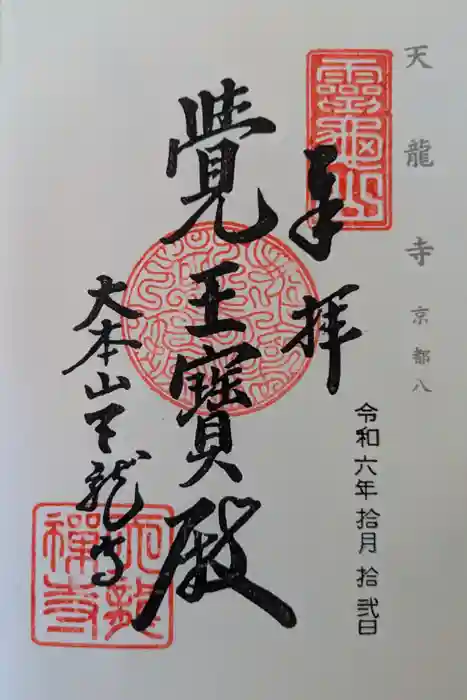 天龍寺 京都八
奉拝
靈龜山
令和六年拾月拾弐日
覺王寶殿
大本山天龍寺
天龍禪寺